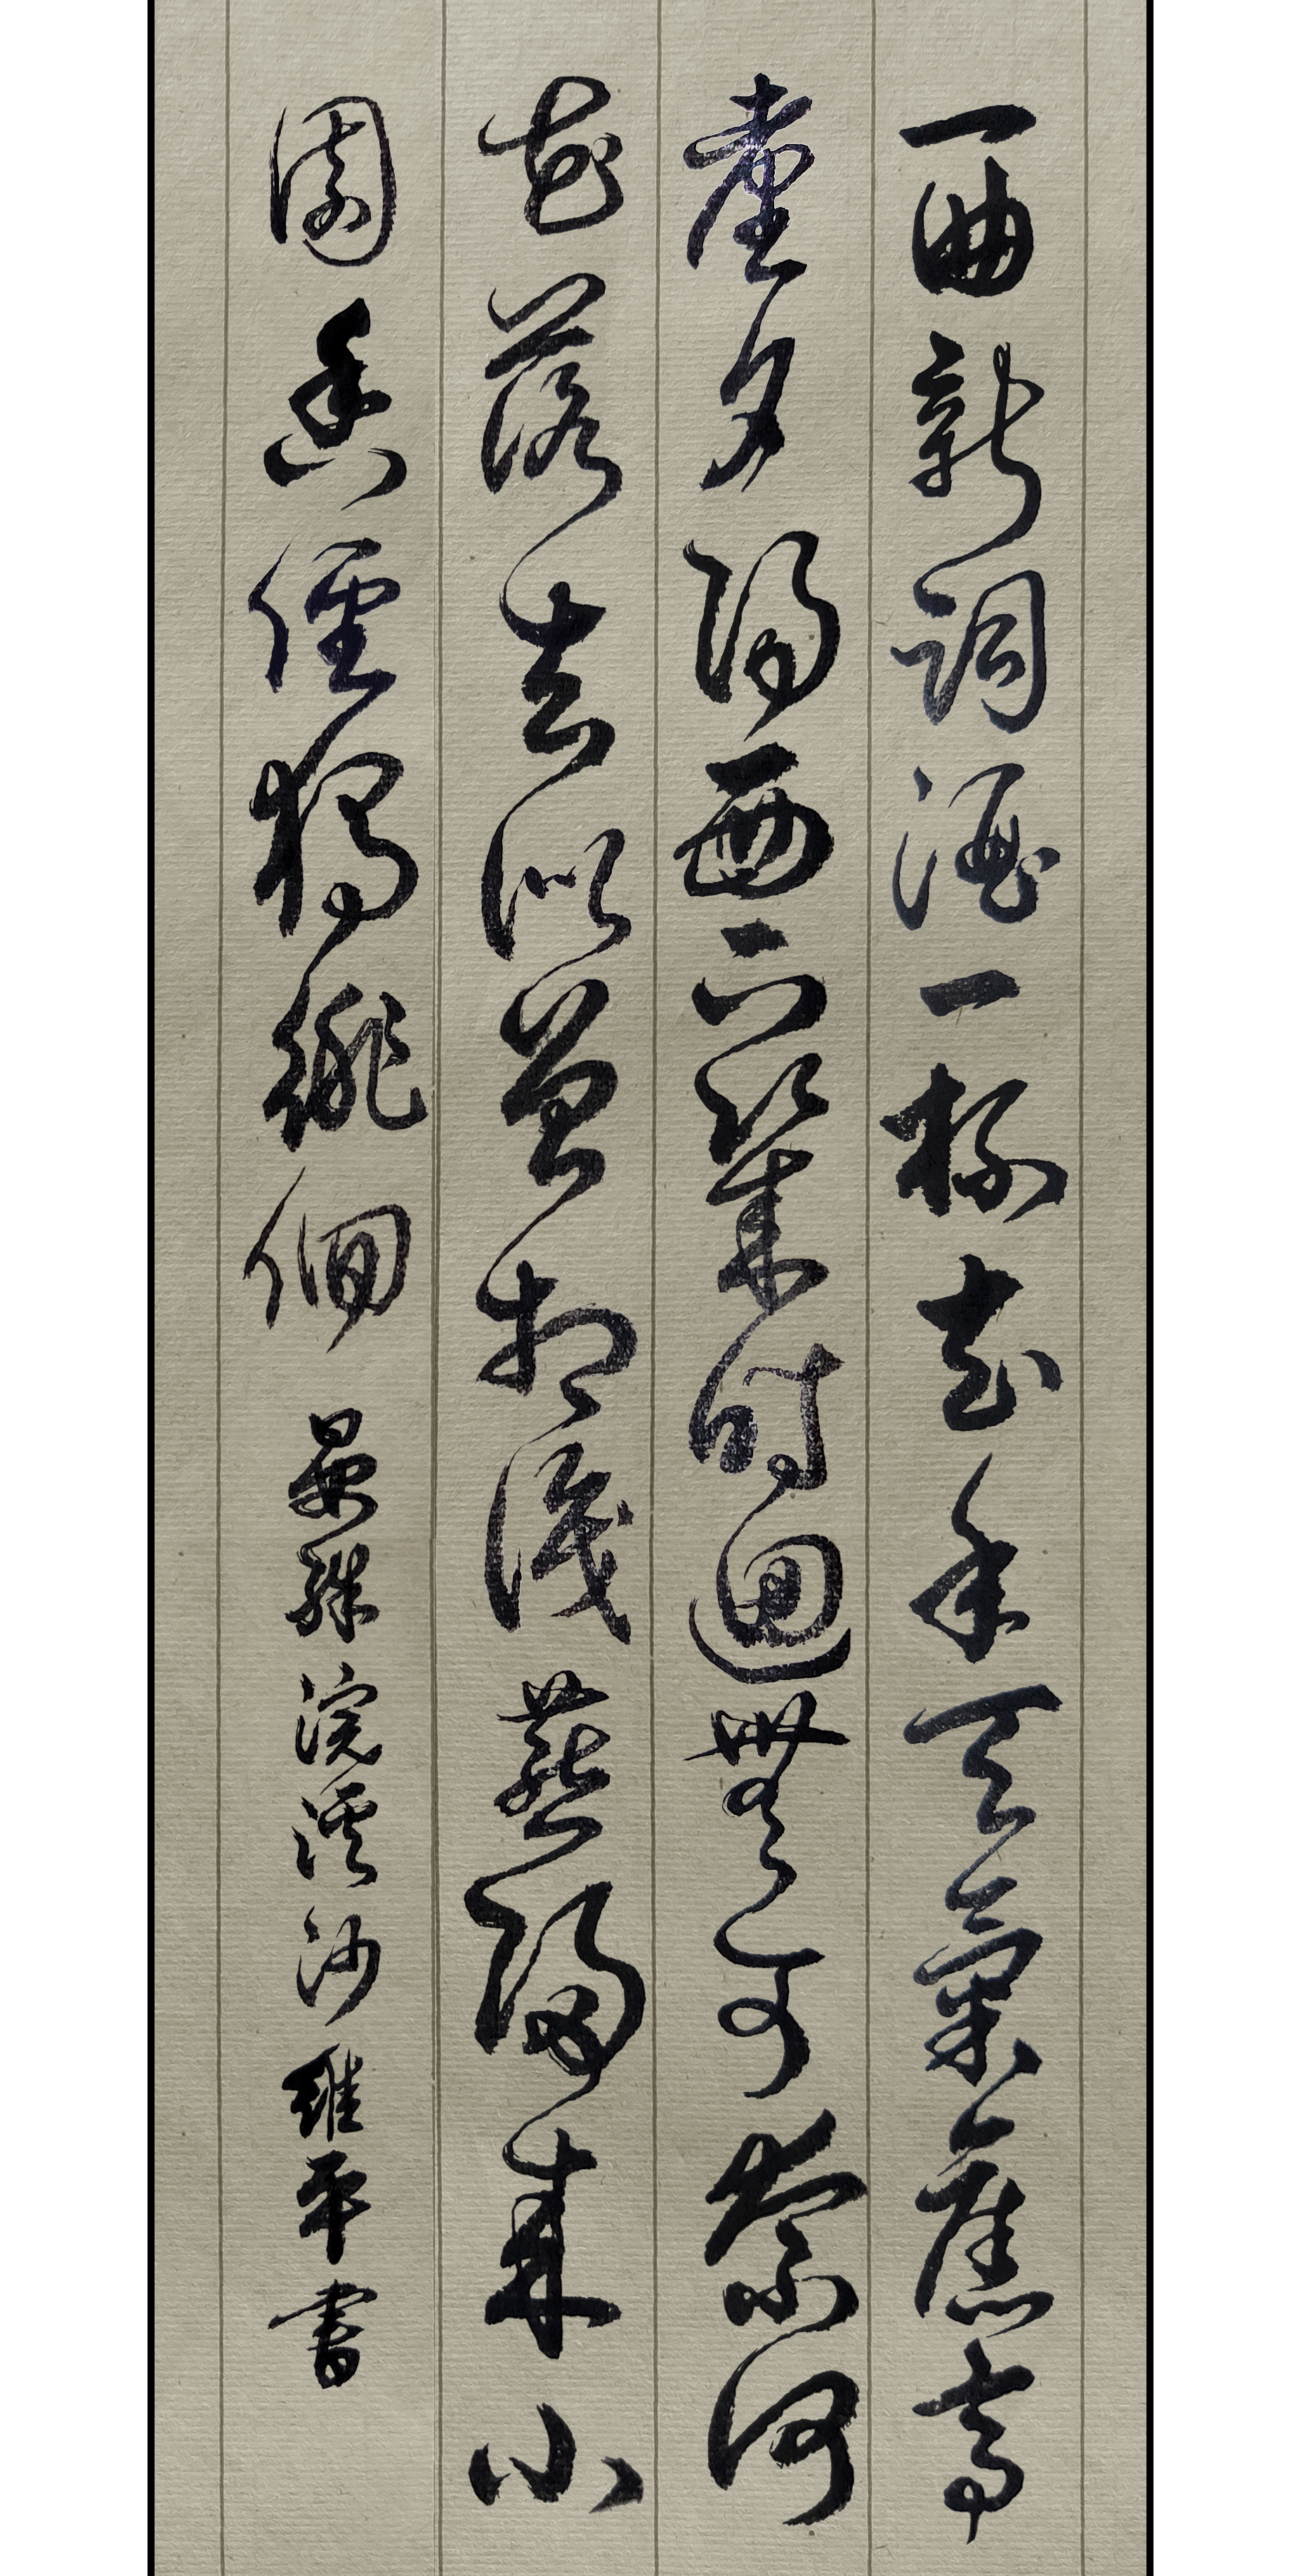 一曲新詞酒一杯去年天氣舊亭
臺夕陽西下幾時迴無可奈何
花落去似曾相識燕歸來小
園香徑獨徘徊 晏殊浣溪沙維平書